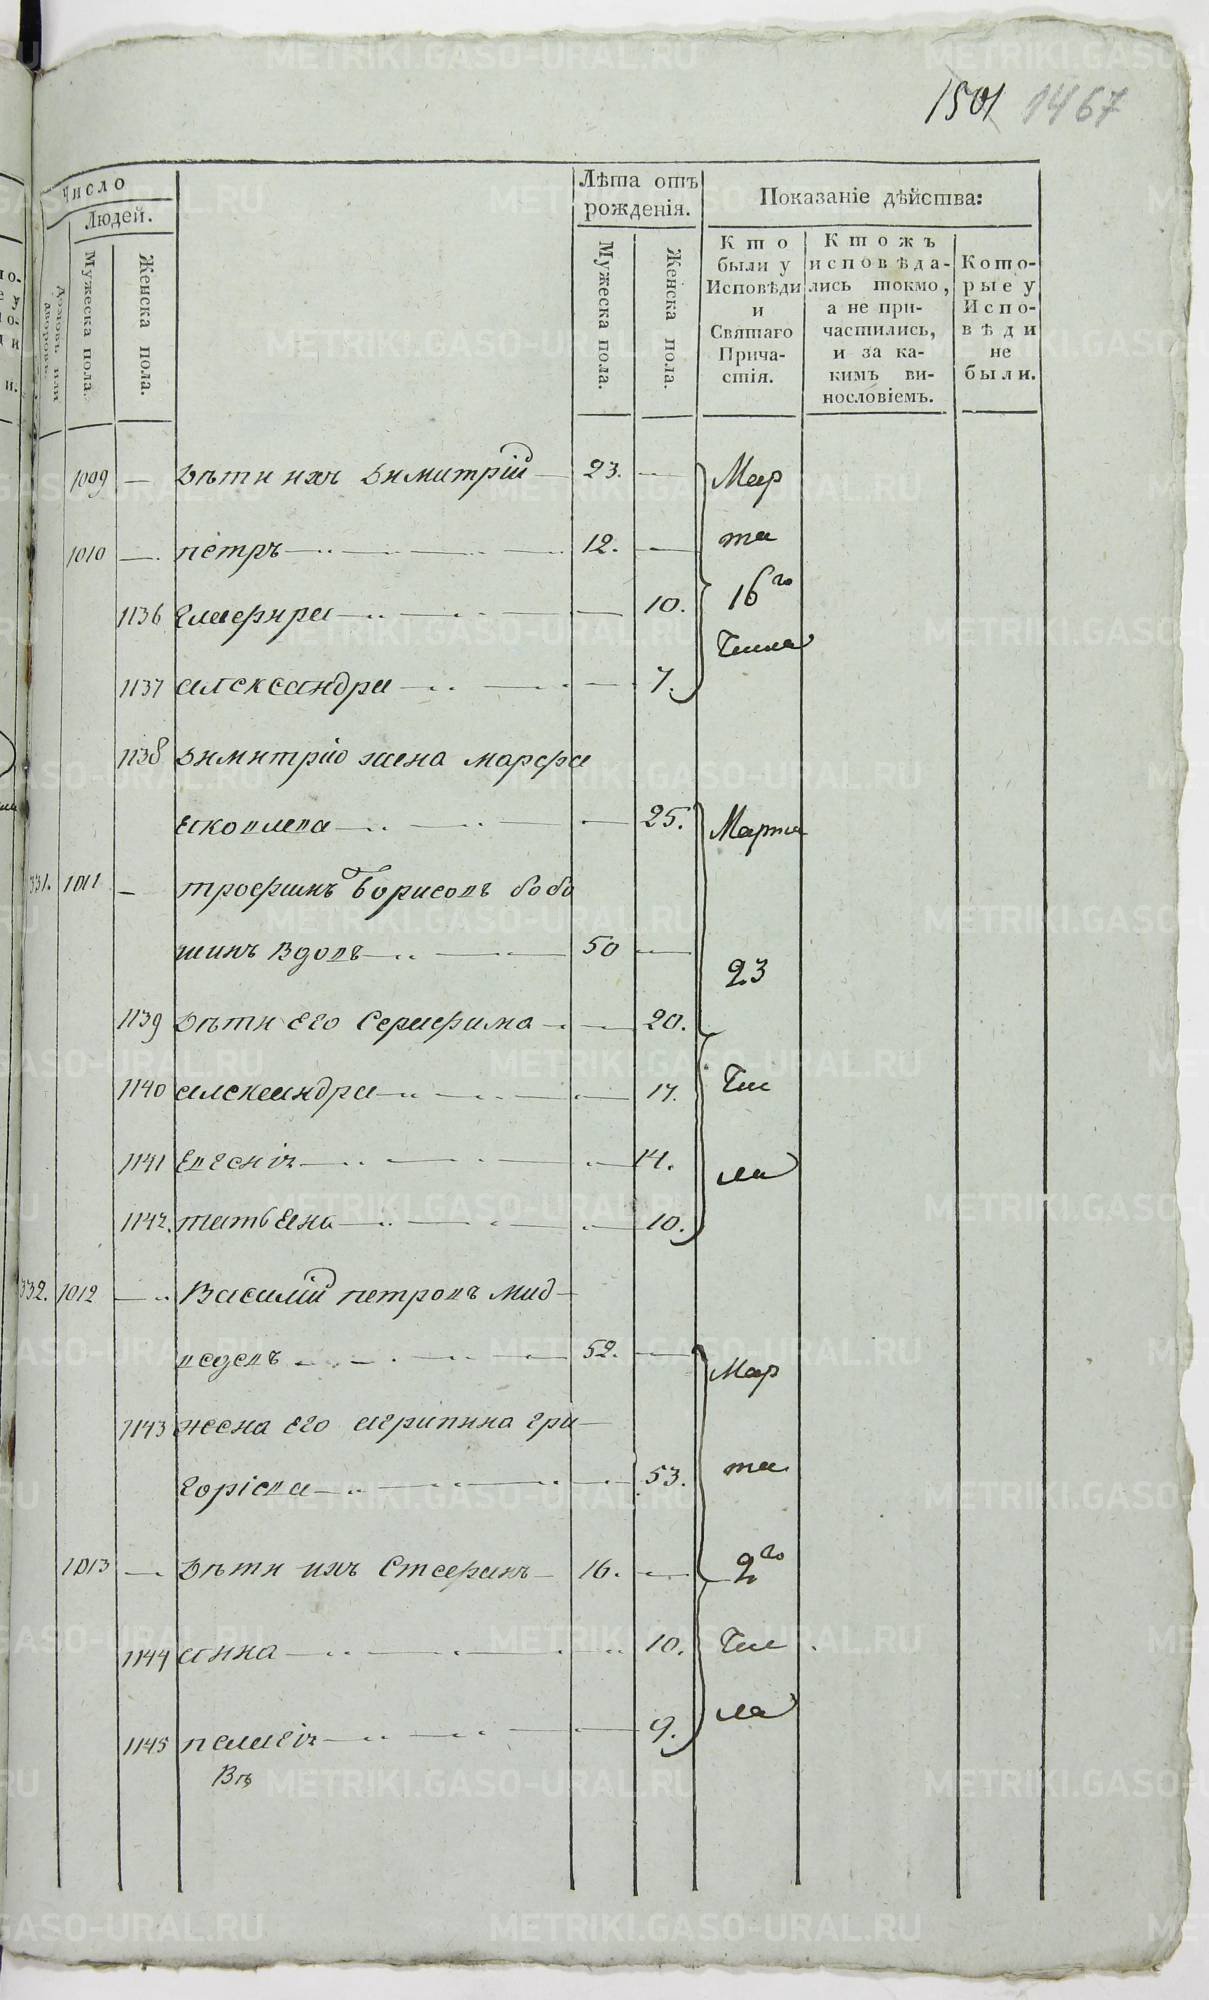 1501 1467
Число
Людей.
Лѣта отъ
рожденія.
Показаніе дѣйства:
Дворовъ или
Мужеска пола.
Женска пола.
Мужеска пола.
Женска пола.
Кто
были у
Исповѣди
и
Святаго
Прича-
стія.
Ктожъ
исповѣда-
лись токмо,
а не при-
частились,
и за ка-
кимъ ви-
нословіемъ.
Кото-
рые у
Испо-
вѣди
не
были.
1009 — Дѣти ихъ Димитрій — 23. — Мар
1010 — петръ — 12. — та
1136 Глафира — 10. 16го
1137 александра — 7. Числа
1138 Димитрію жена марфа
Яковлева — 25. Марта
331. 1011 — трофимъ Борисовъ бобо
шинъ Вдовъ — 50 —
23
1139 Дѣти Его Серафима — 20.
1140 александра — 17. Чис
1141 Евгенія — 14.
ла
1142. татьяна — 10.
332. 1012 — Василій петровъ мид-
ведевъ — 52. — Мар
1143 жена Его агрипина гри-
горіева — 53. та
1013 — Дѣти ихъ Стефанъ — 16. — 2го
1144 анна — 10. Чис
ла
1145 пелагія — 9.
Въ
METRIKI.GASO-URAL.RU